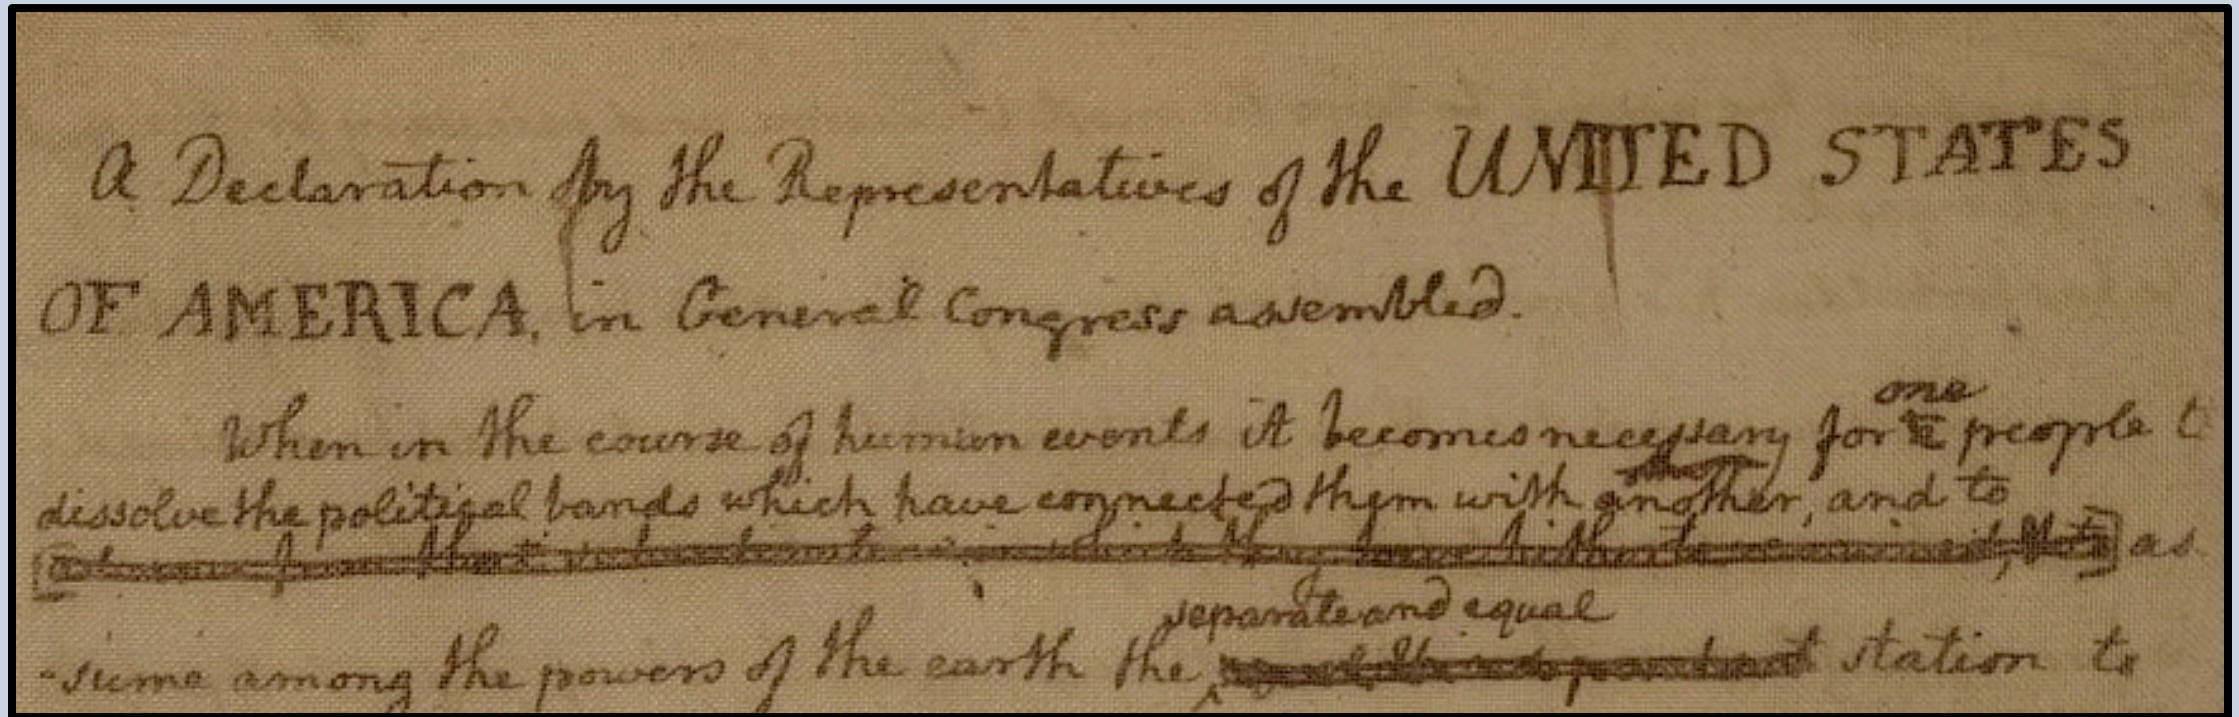 A Declaration by the Representatives of the UNITED STATES
OF AMERICA, in General Congress assembled.
one
When in the course of human events it becomes necessary for a people t
dissolve the political bands which have connected them with another, and to
as
separate and equal
-sume among the powers of the earth the station to